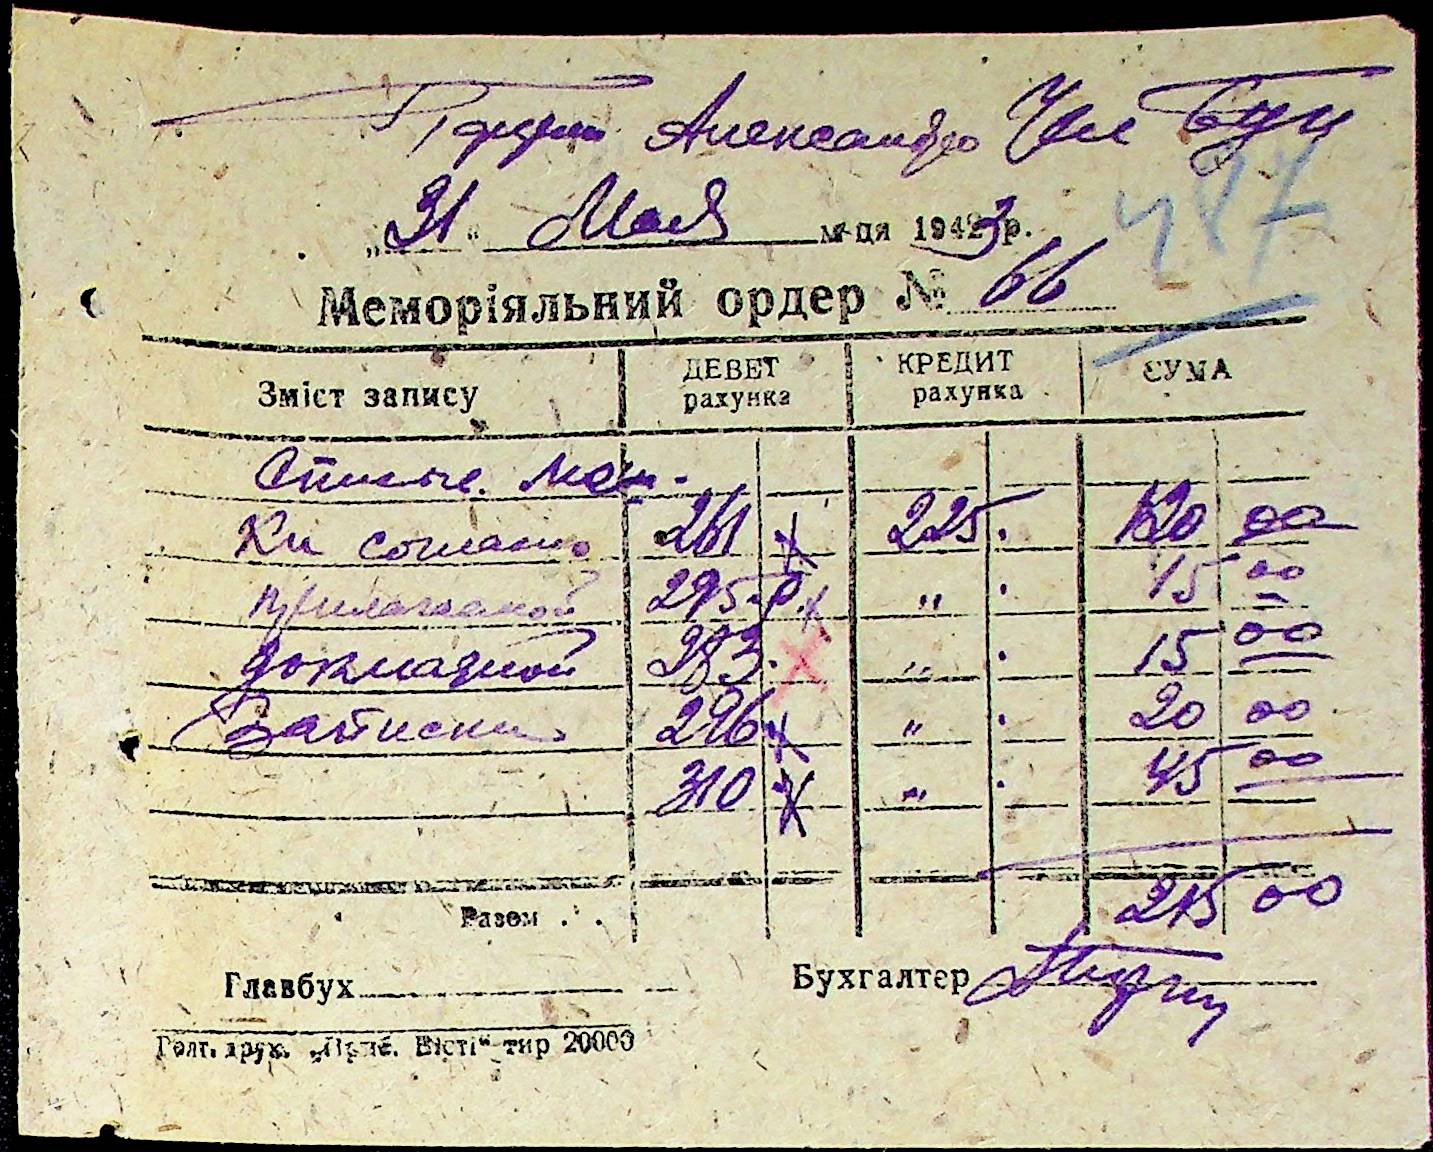 Александро
487
„31“ Мая м-ця 1943 р.
Меморіяльний ордер № 66
Зміст запису ДЕБЕТ рахунка КРЕДИТ рахунка СУМА
Списыв. мел-
ки согласно 261 225 120 00
прилагаемой 295 " 15 00
докладной 283 " 15 00
Записки 296 " 20 00
310 " 45 00
Разом . . 215 00
Главбух Бухгалтер
Голт. друк. „Приб. Вісті“ тир 20000